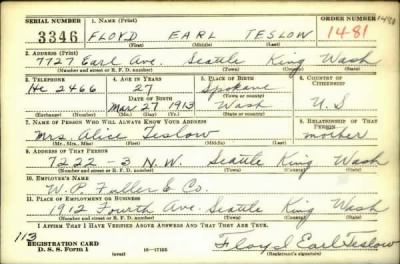 SERIAL NUMBER 1. NAME (Print) ORDER NUMBER
3346 FLOYD EARL TESLOW 1481
(First) (Middle) (Last)
2. ADDRESS (Print)
7727 Earl Ave. Seattle King Wash
(Number and street or R. F. D. number) (Town) (County) (State)
3. TELEPHONE 4. AGE IN YEARS 5. PLACE OF BIRTH 6. COUNTRY OF CITIZENSHIP
He 2466 27 Spokane
DATE OF BIRTH
Mar 27 1913 Wash U.S
(Exchange) (Number) (Mo.) (Day) (Yr.) (State or country)
7. NAME OF PERSON WHO WILL ALWAYS KNOW YOUR ADDRESS 8. RELATIONSHIP OF THAT PERSON
Mrs. Alice Teslow mother
(Mr., Mrs., Miss) (First) (Middle) (Last)
9. ADDRESS OF THAT PERSON
7222-3 N.W. Seattle King Wash
(Number and street or R. F. D. number) (Town) (County) (State)
10. EMPLOYER'S NAME
W. P. Fuller & Co.
11. PLACE OF EMPLOYMENT OR BUSINESS
1912 Fourth Ave. Seattle King Wash
(Number and street or R. F. D. number) (Town) (County) (State)
I AFFIRM THAT I HAVE VERIFIED ABOVE ANSWERS AND THAT THEY ARE TRUE.
113
REGISTRATION CARD
D. S. S. Form 1 16-17105 Floyd Earl Teslow
(over) (Registrant's signature)